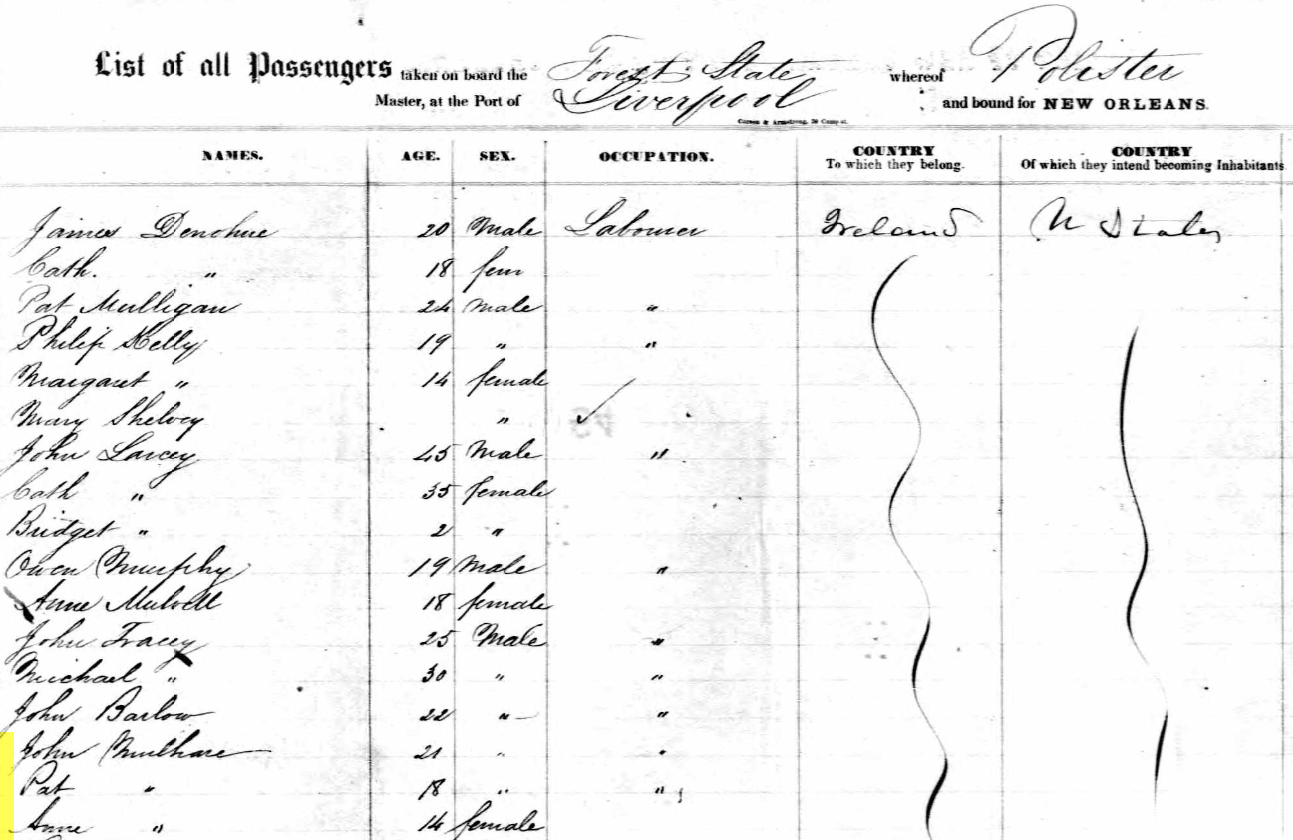 List of all Passengers taken on board the Forest State whereof Polister
Master, at the Port of Liverpool and bound for NEW ORLEANS.
NAMES. AGE. SEX. OCCUPATION. COUNTRY To which they belong. COUNTRY Of which they intend becoming Inhabitants
James Denohue 20 Male Labourer Ireland U States
Cath. " 18 fem
Pat Mulligan 24 male "
Philip Kelly 19 " "
Margaret " 14 female
Mary "
John Larcey 45 Male "
Cath " 35 female
Bridget " 2 "
Owen Murphy 19 Male "
Anne 18 female
John Tracey 25 Male "
Michael " 30 " "
John Barlow 22 " "
John Mulhare 21 " "
Pat " 18 " "
Anne " 14 female